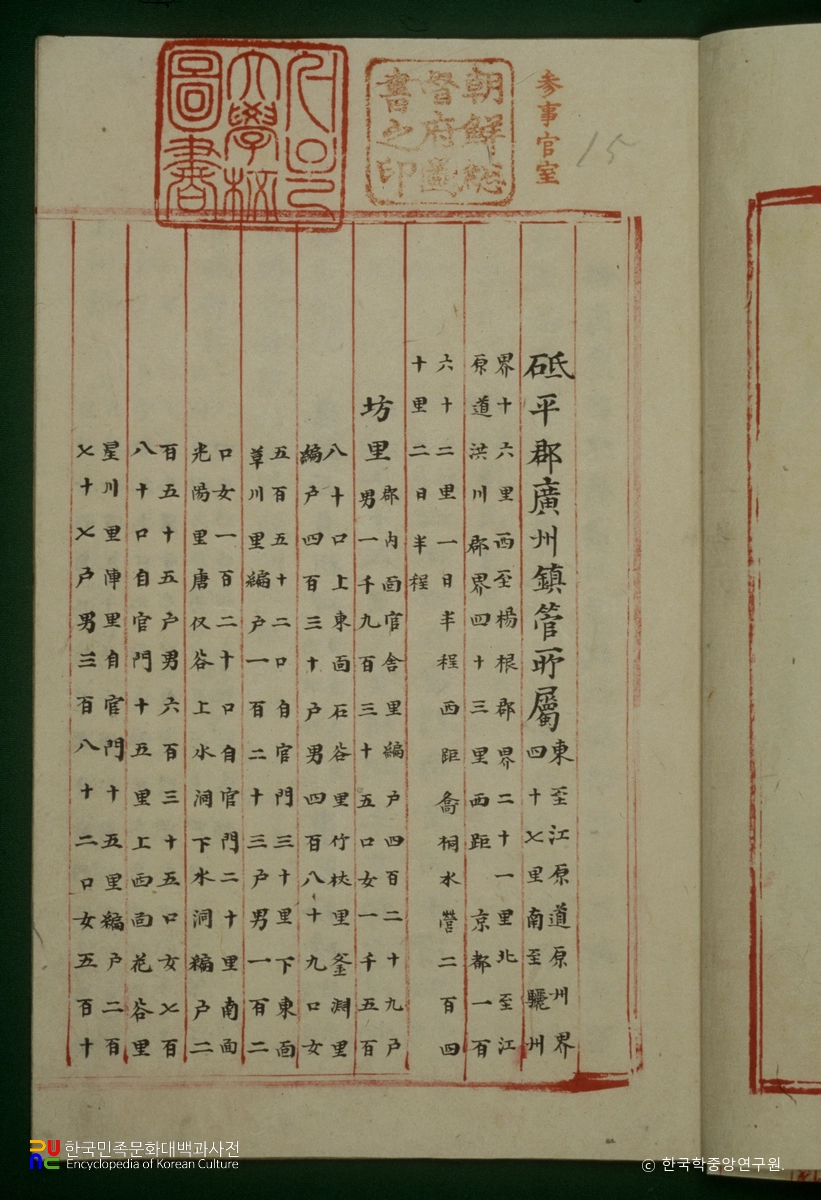 참
參事官室
15
朝鮮總
督府圖
書之印
서울
大學校
圖書
砥平郡廣州鎭管所屬
東至江原道原州界
四十七里南至驪州
界十六里西至楊根郡界二十一里北至江
原道洪川郡界四十三里西距 京都一百
六十二里一日半程西距喬桐水營二百四
十里二日半程
坊里
郡內面官舍里編戶四百二十九戶
男一千九百三十五口女一千五百
八十口上東面石谷里竹杖里釜淵里
編戶四百三十戶男四百八十九口女
五百五十二口自官門三十里下東面
草川里編戶一百二十三戶男一百二
口女一百二十口自官門二十里南面
光陽里唐仅谷上水洞下水洞編戶二
百五十五戶男六百三十五口女七百
八十口自官門十五里上西面花谷里
星川里陣里自官門十五里編戶二百
七十七戶男三百八十二口女五百十
한국민족문화대백과사전
Encyclopedia of Korean Culture
© 한국학중앙연구원